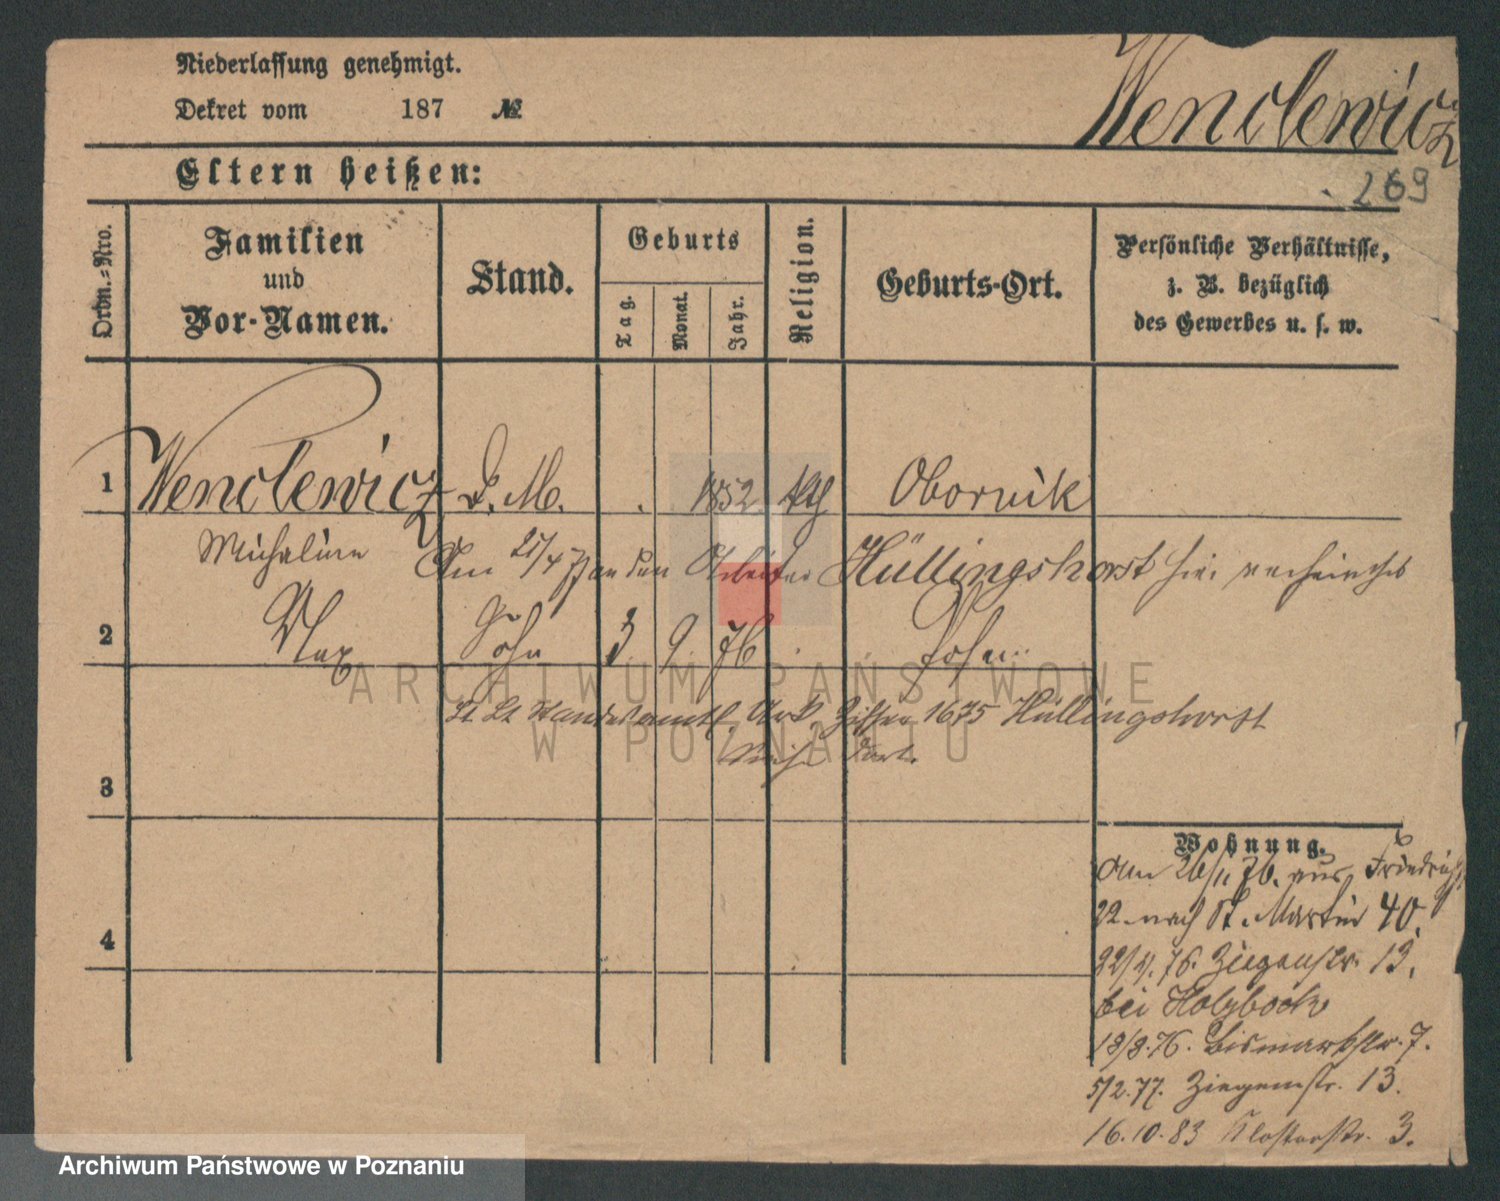 Niederlassung genehmigt.
Dekret vom 187 №
Wenclewicz
Eltern heißen:
269
Ordn.-Nro.
Familien und Vor-Namen.
Stand.
Geburts
Tag.
Monat.
Jahr.
Religion.
Geburts-Ort.
Persönliche Verhältnisse,
z. B. bezüglich
des Gewerbes u. s. w.
1 Wenclewicz D. M. 1852 kth Obornik
Michalina Am 21/4 77 an den Arbeiter Hüllingshorst hier verheirathet
2 Max Sohn 3 9 76 Posen
Lt Standesamtl. Urk. 1675 Hüllingshorst
3
4
Wohnung.
Am 26/1 76. aus Friedrichstr
22 nach St. Martin 40.
22/4. 76. Ziegenstr. 13.
bei Holzbock
18/8.76. Bismarckstr. 7.
5/2.77. Ziegenstr. 13.
16.10.83 Klosterstr. 3.
ARCHIWUM PAŃSTWOWE
W POZNANIU
Archiwum Państwowe w Poznaniu